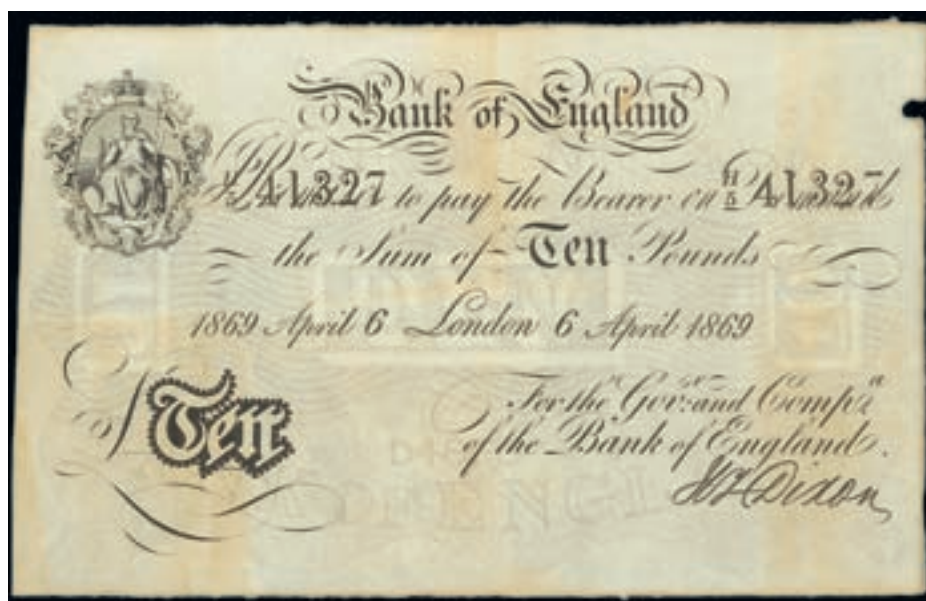 Bank of England
I Promise 41327 to pay the Bearer on H/5 41327 Demand
the Sum of Ten Pounds
1869 April 6 London 6 April 1869
For the Govr. and Compa.
£ Ten
of the Bank of England.
Dixon